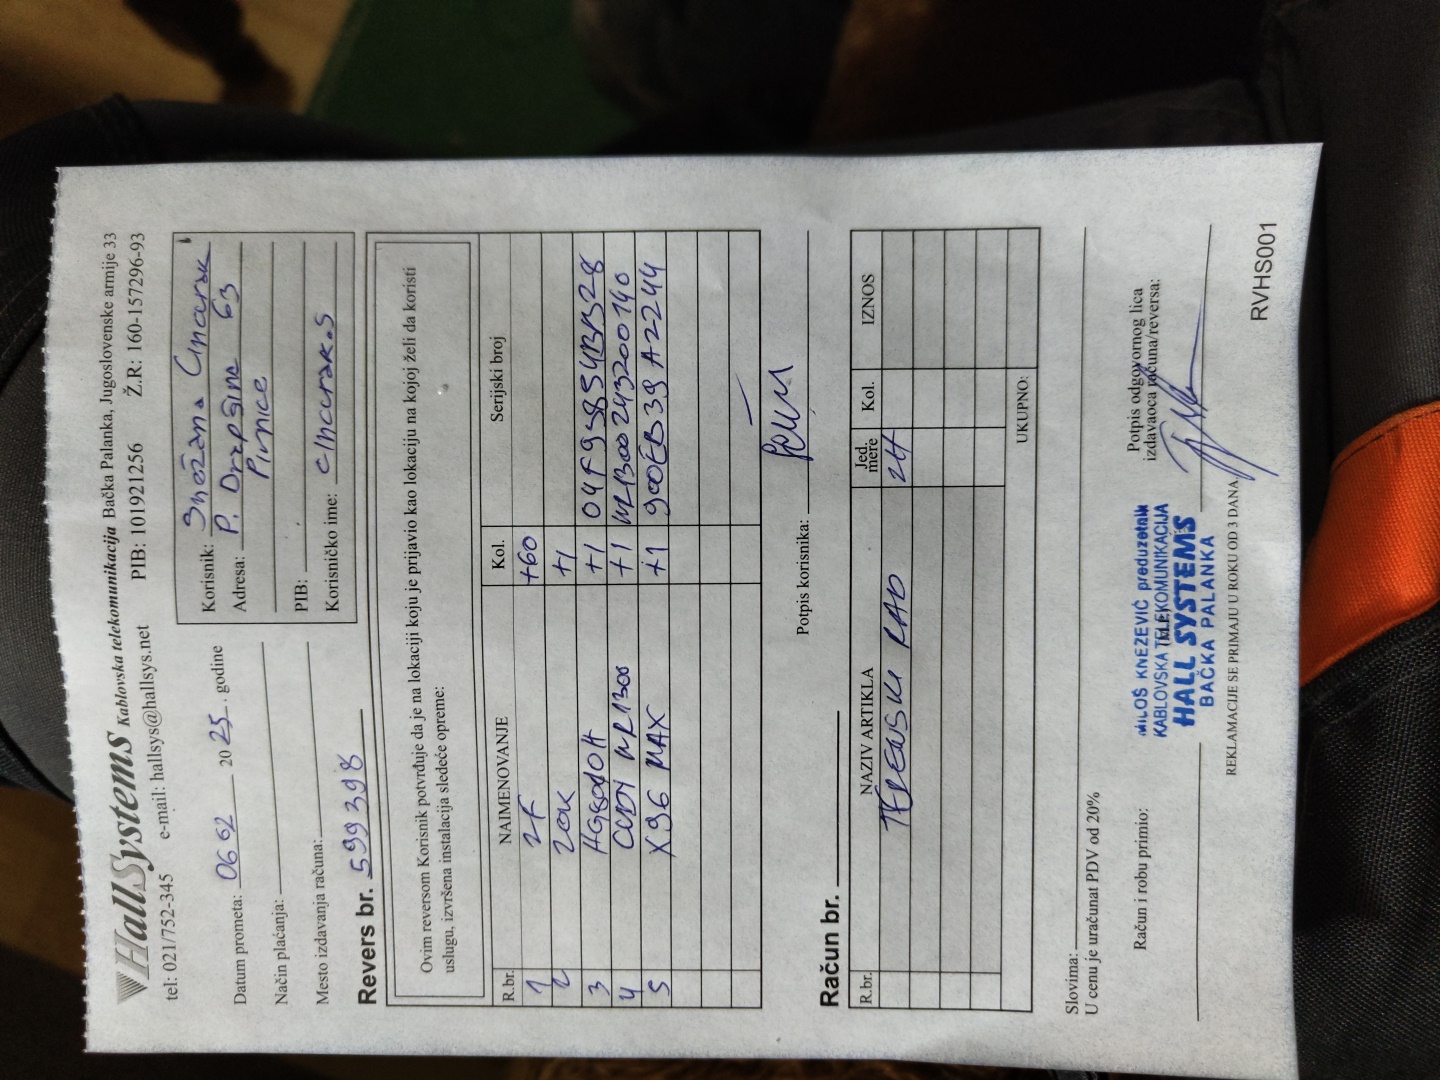 HallSystems Kablovska telekomunikacija Bačka Palanka, Jugoslovenske armije 33
tel: 021/752-345 e-mail: hallsys@hallsys.net PIB: 101921256 Ž.R: 160-157296-93
Datum prometa: 06 02 20 25. godine
Način plaćanja:
Mesto izdavanja računa:
Korisnik: Snežana
Adresa: P. Drapšina 63
Pivnice
PIB:
Korisničko ime:
Revers br. 599398
Ovim reversom Korisnik potvrđuje da je na lokaciji koju je prijavio kao lokaciju na kojoj želi da koristi
uslugu, izvršena instalacija sledeće opreme:
R.br. NAIMENOVANJE Kol. Serijski broj
1 2F +60
2 ZOK +1
3 +1
4 CUDY WR1300 +1 WR1300243200140
5 X96 MAX +1 900EB39A2244
Potpis korisnika:
Račun br.
R.br. NAZIV ARTIKLA Jed. mere Kol. IZNOS
TERENSKI RAD 2H
UKUPNO:
Slovima:
U cenu je uračunat PDV od 20%
Račun i robu primio:
MILOŠ KNEZEVIĆ preduzetnik
KABLOVSKA TELEKOMUNIKACIJA
HALL SYSTEMS
BAČKA PALANKA
Potpis odgovornog lica
izdavaoca računa/reversa:
REKLAMACIJE SE PRIMAJU U ROKU OD 3 DANA
RVHS001